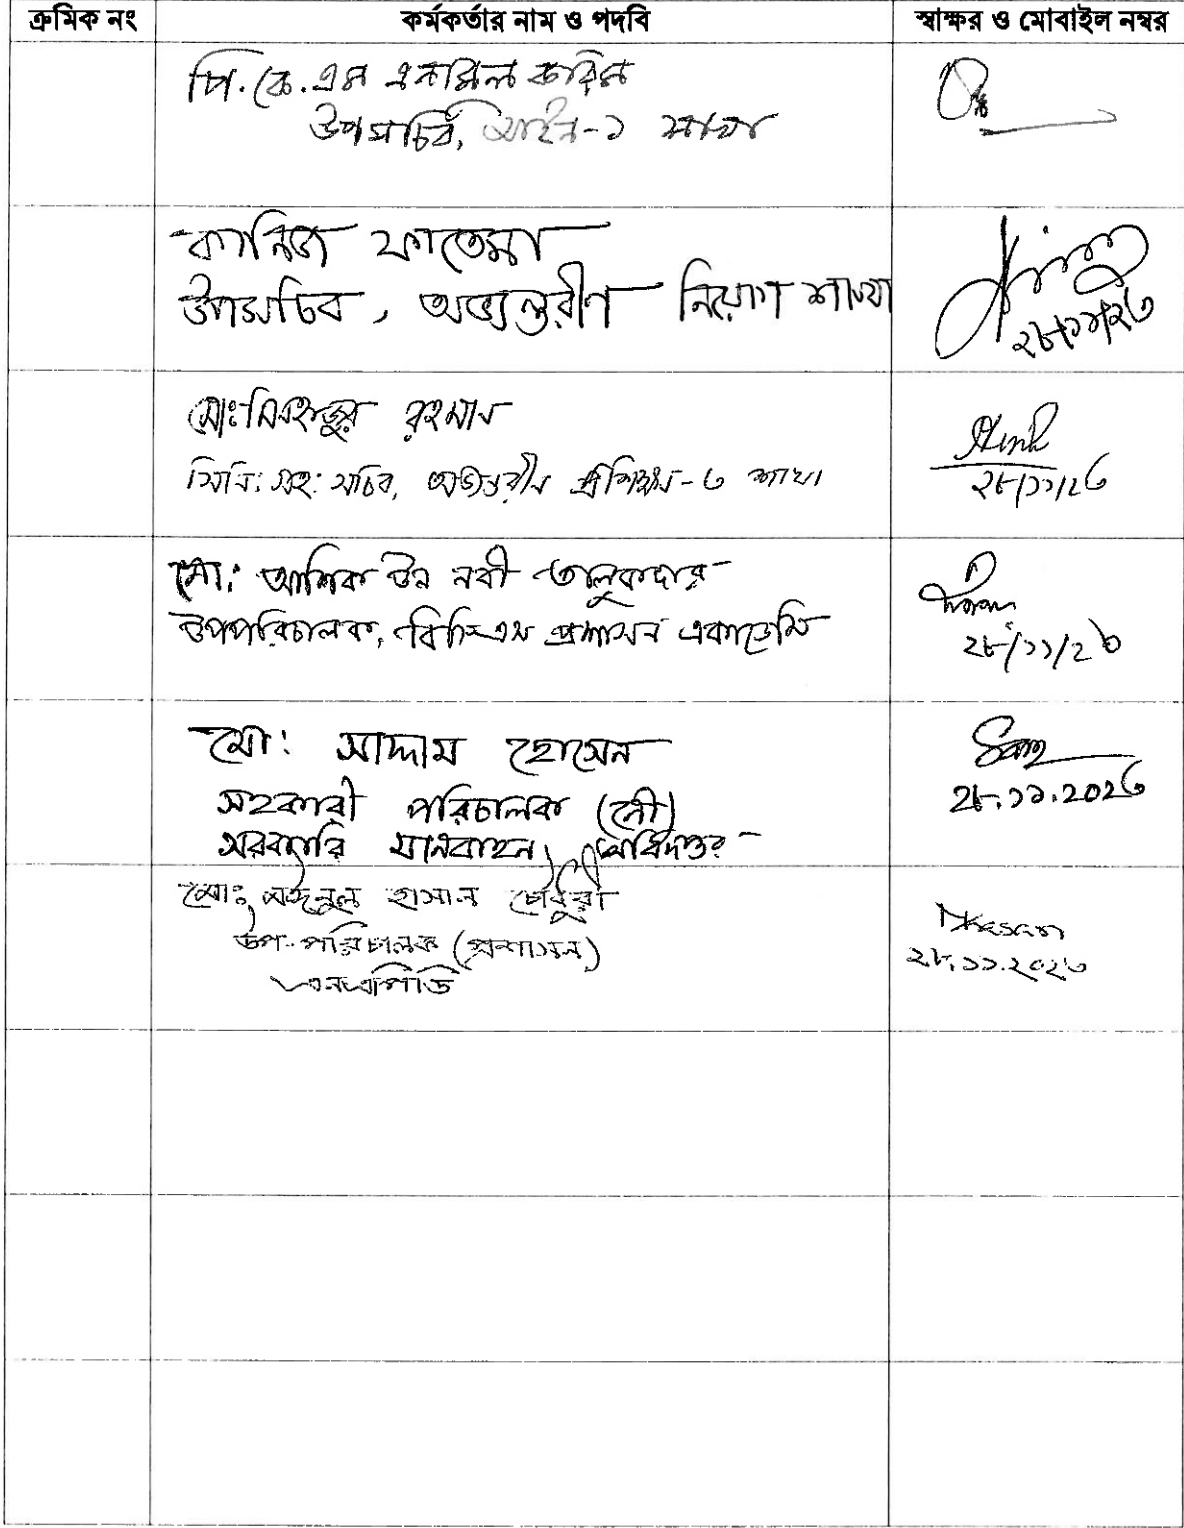 ক্রমিক নং কর্মকর্তার নাম ও পদবি স্বাক্ষর ও মোবাইল নম্বর
পি.কে.এম এনামুল করিম
উপসচিব, আইন-১ শাখা
কানিজ ফাতেমা
উপসচিব, অভ্যন্তরীণ নিয়োগ শাখা
২৮/১১/২৩
মোঃ রহমান
সিনি: সহ: সচিব, অভ্যন্তরীন প্রশিক্ষন-৩ শাখা
২৮/১১/২৩
মো: আশিক উন নবী তালুকদার
উপপরিচালক, বিসিএস প্রশাসন একাডেমি
২৮/১১/২৩
মো: সাদ্দাম হোসেন
সহকারী পরিচালক (নৌ)
২৮.১১.২০২৩
সরকারি যানবাহন অধিদপ্তর
মোঃ মঈনুল হাসান চৌধুরী
উপ-পরিচালক (প্রশাসন)
এনএপিডি
২৮.১১.২০২৩